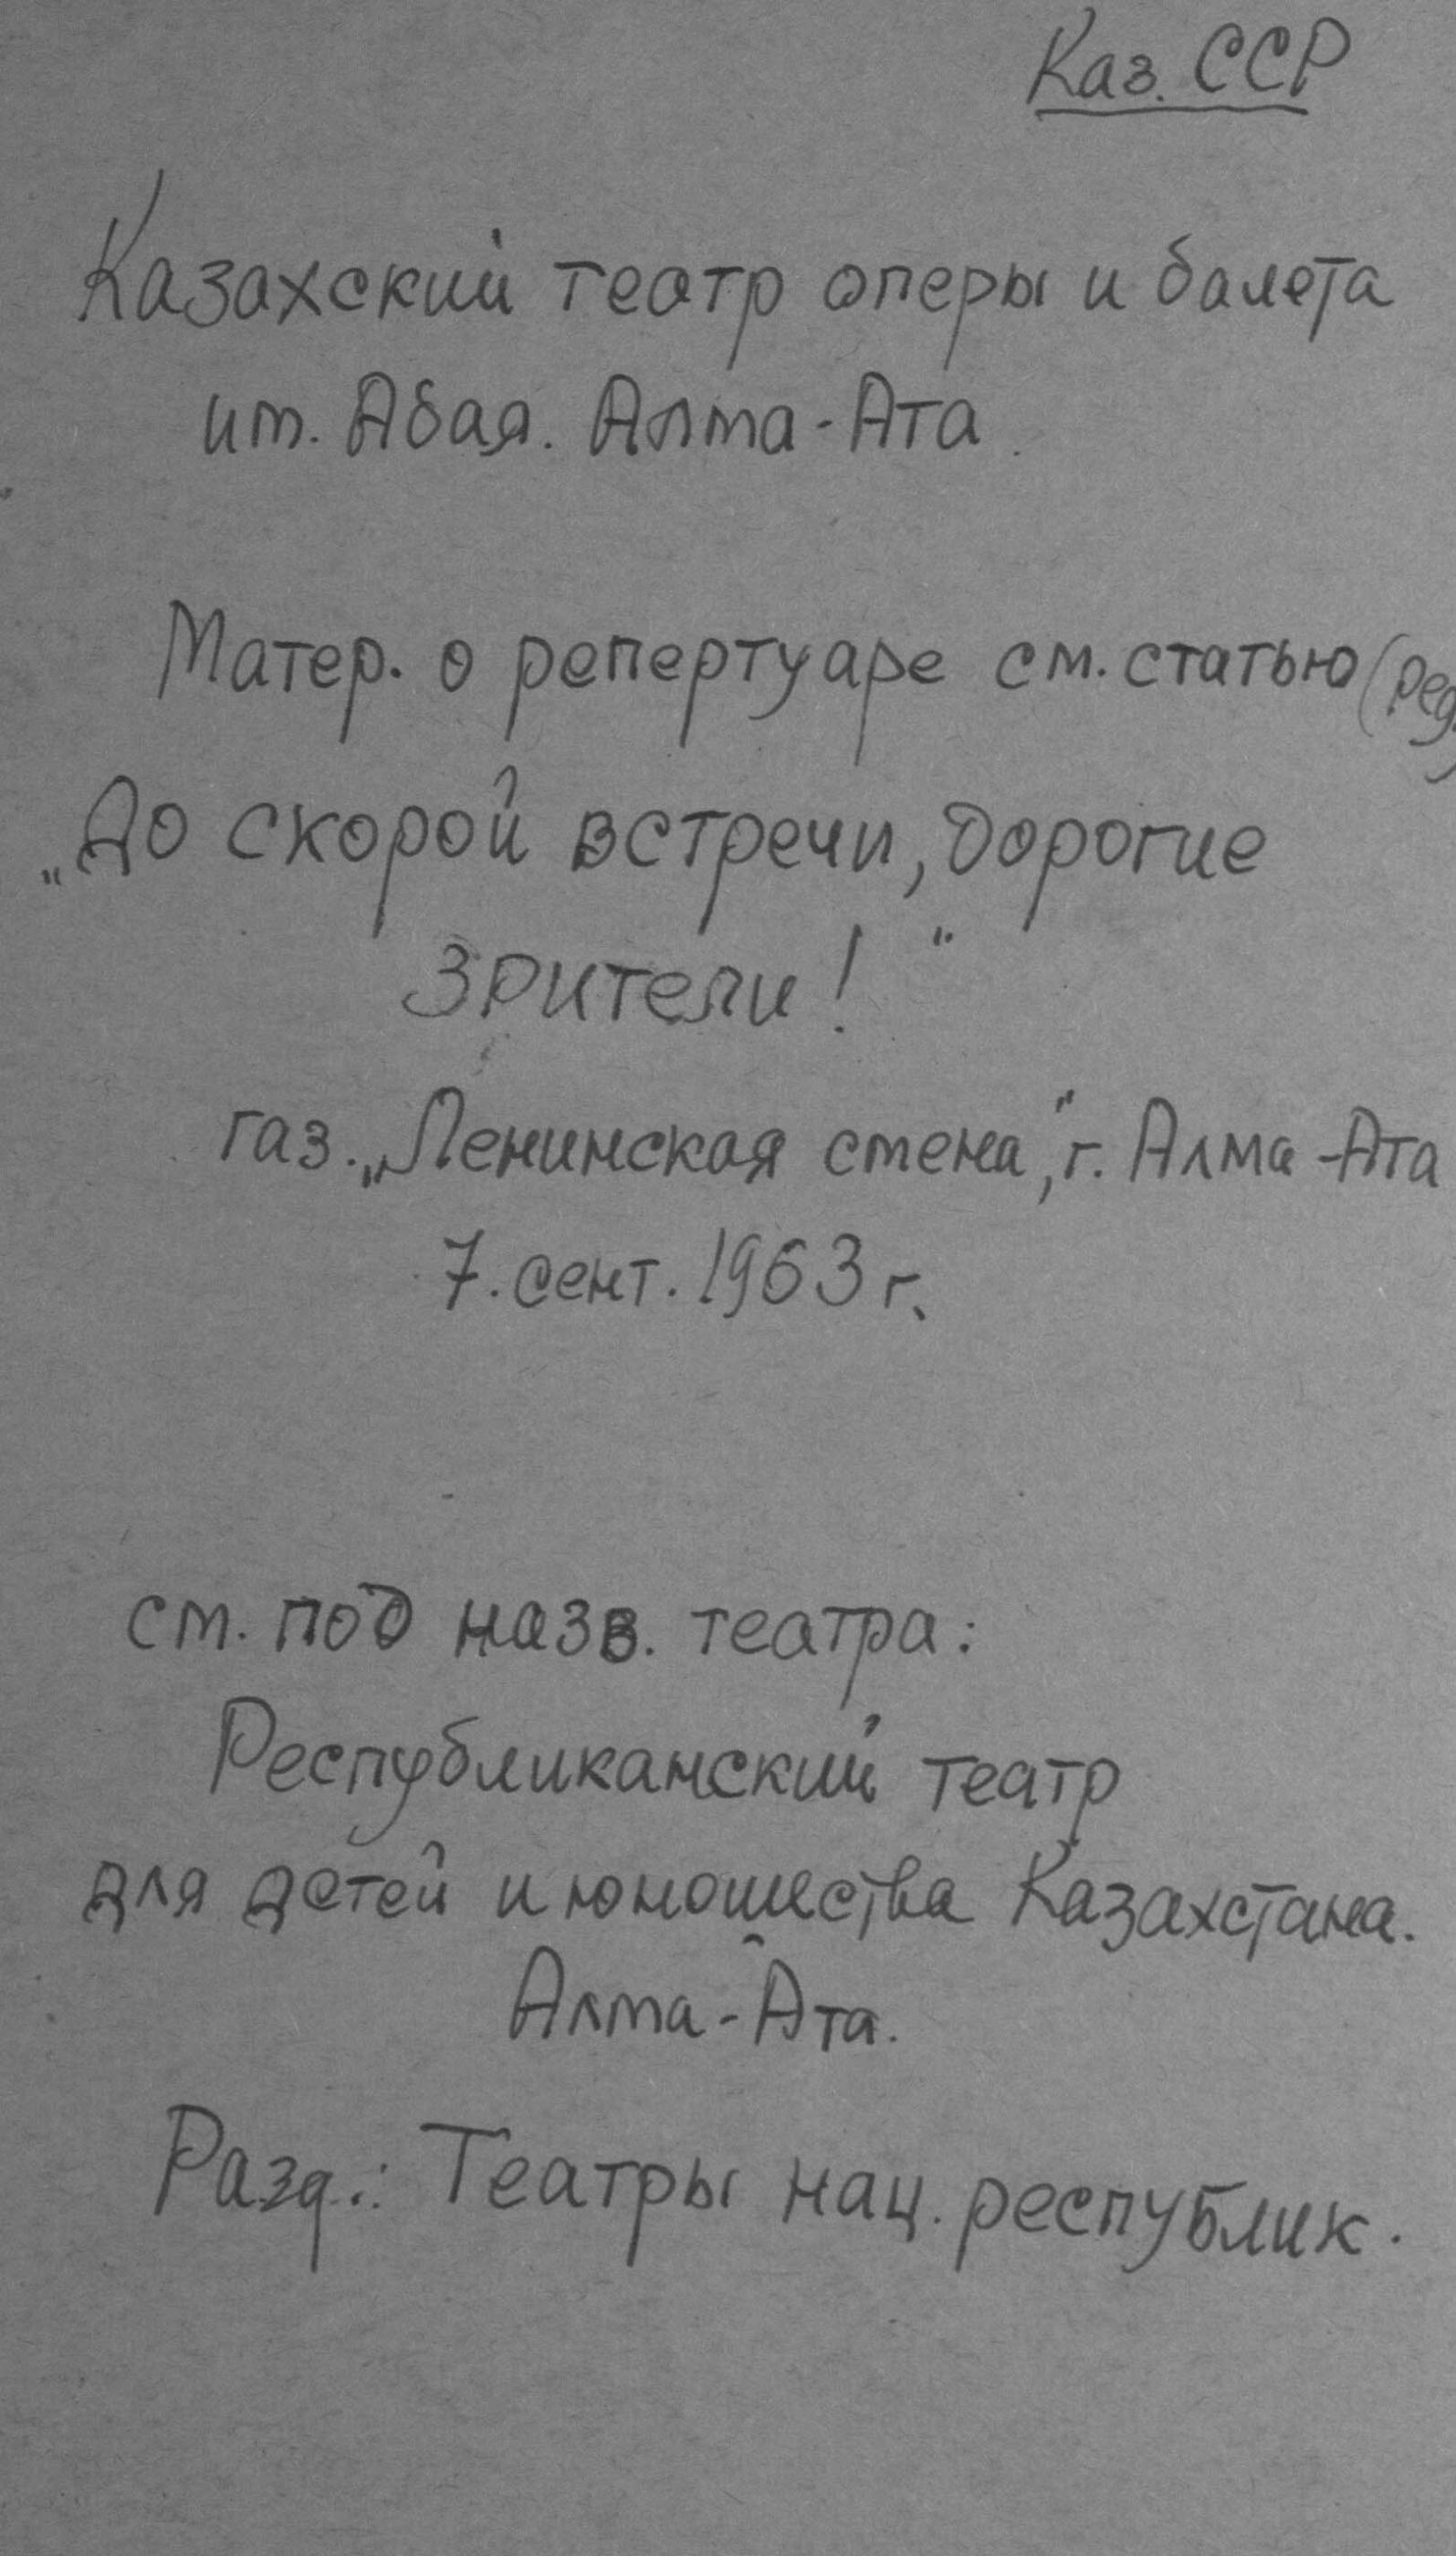 Каз. ССР
Казахский театр оперы и балета
им. Абая. Алма-Ата.
Матер. о репертуаре см. статью (ред.)
„До скорой встречи, дорогие
зрители!“
газ. „Ленинская смена“, г. Алма-Ата
7. сент. 1963 г.
см. под назв. театра:
Республиканский театр
для детей и юношества Казахстана.
Алма-Ата.
Разд.: Театры нац. республик.